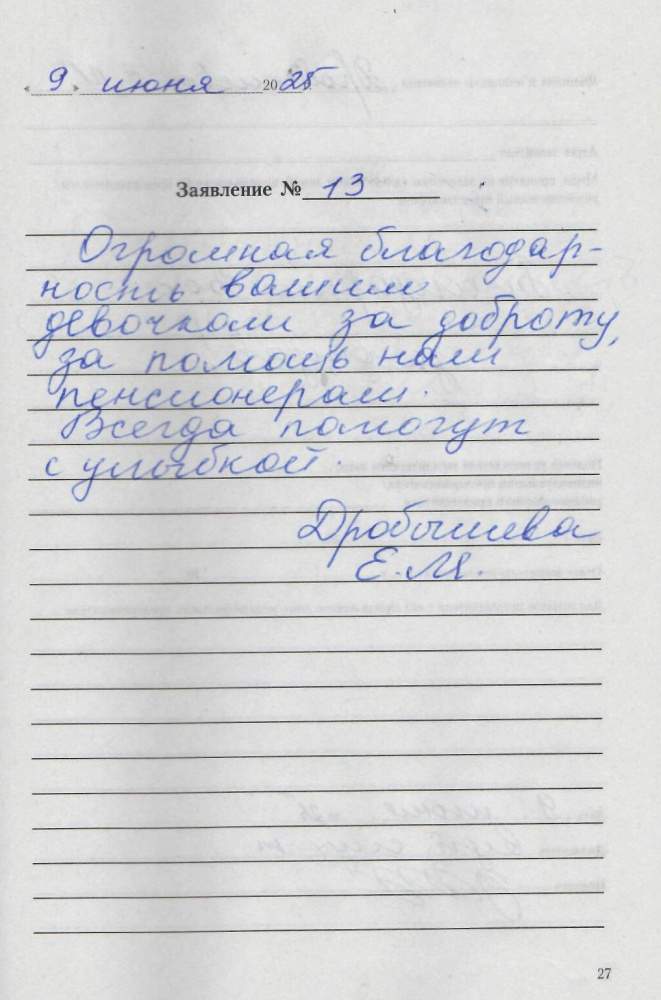 « 9 » июня 2025
Заявление № 13
Огромная благодар-
ность вашим
девочкам за доброту,
за помощь нам
пенсионерам.
Всегда помогут
с улыбкой.
Дробышева
Е.М.
27